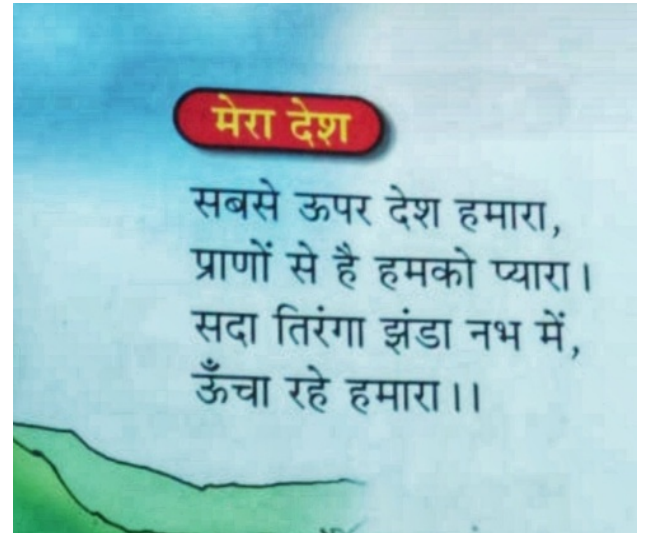 मेरा देश
सबसे ऊपर देश हमारा,
प्राणों से है हमको प्यारा।
सदा तिरंगा झंडा नभ में,
ऊँचा रहे हमारा।।